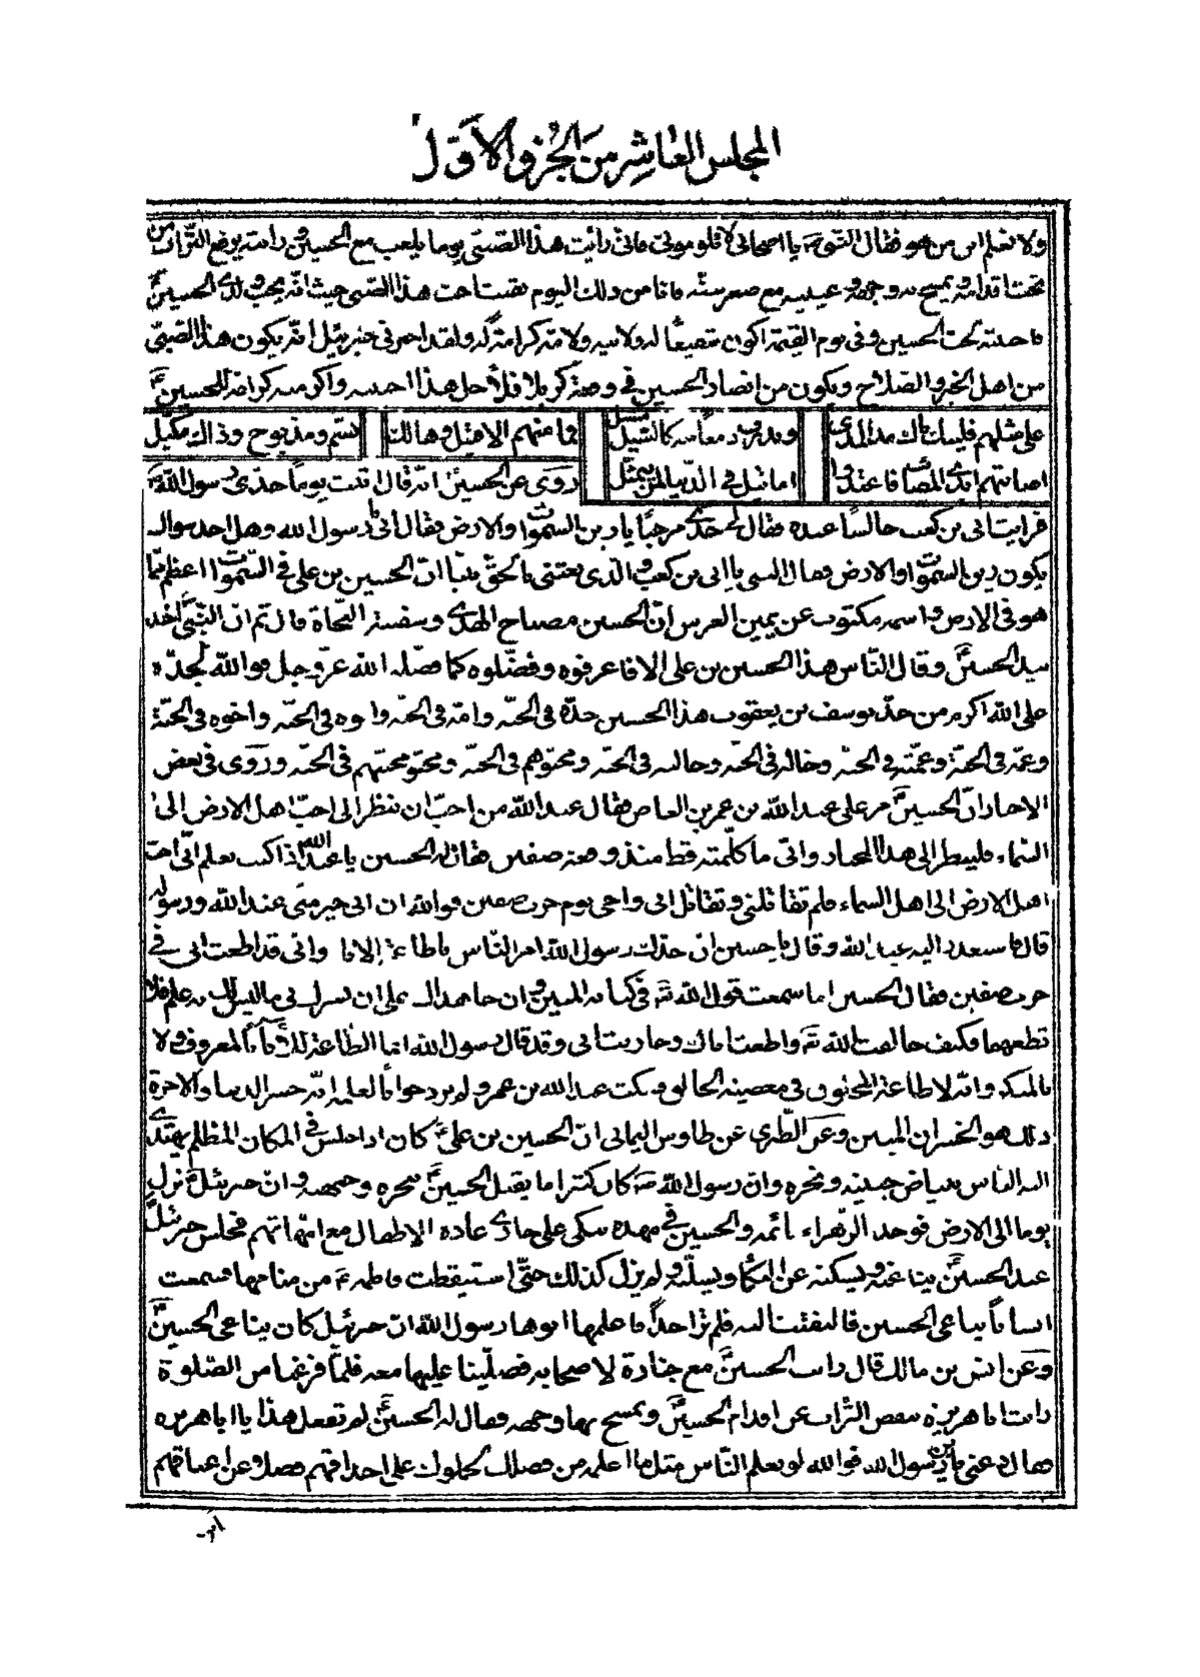 المجلس العاشر من الجزو الاول
ولا نعلم ابن من هو فقال النبى يا اصحابى لا تلومونى فانى رايت هذا الصبى يوما يلعب مع الحسين و رايته يرفع التراب من
تحت قدامه و يمسح به وجهه و عينيه مع صغر سنه فانا من ذلك اليوم بقيت احب هذا الصبى حيث انه يحب ولدى الحسين
فاحببته لحب الحسين و فى يوم القيمة اكون شفيعا له و لابيه و لامه كرامة له و لقد اخبرنى جبرئيل انه يكون هذا الصبى
من اهل الخير و الصلاح و يكون من انصار الحسين فى وقعة كربلا فلأجل هذا احببته و اكرمته كراما للحسين
على مثلهم فليبك من
كالسيل
فما منهم الا قتيل و هالك
بسم و مذبوح و ذاك
اصابتهم ايدى المصائب فاغتدوا
اماثيل فى الدنيا لمن يتمثل
روى عن الحسين انه قال اتيت يوما جدى رسول الله
فرايت ابى بن كعب جالسا عنده فقال لى جدى مرحبا يا زين السموات و الارض فقال ابى يا رسول الله و هل احد سواك
يكون زين السموات و الارض فقال النبى يا ابى بن كعب و الذى بعثنى بالحق نبيا ان الحسين بن على فى السموات اعظم مما
هو فى الارض و اسمه مكتوب عن يمين العرش ان الحسين مصباح الهدى و سفينة النجاة قال ثم ان النبى اخذ
بيد الحسين و قال ايها الناس هذا الحسين بن على الا فاعرفوه و فضلوه كما فضله الله عز و جل فو الله لجده
على الله اكرم من جد يوسف بن يعقوب هذا الحسين جده فى الجنة و امه فى الجنة و ابوه فى الجنة و اخوه فى الجنة
و عمه فى الجنة و عمته فى الجنة و خاله فى الجنة و خالته فى الجنة و محبوهم فى الجنة و محبو محبيهم فى الجنة و روى فى بعض
الاخبار ان الحسين مر على عبد الله بن عمرو بن العاص فقال عبد الله من احب ان ينظر الى احب اهل الارض الى
السماء فلينظر الى هذا المجتاز و انى ما كلمته قط منذ وقعة صفين فقال له الحسين يا عبد الله اذا كنت تعلم انى احب
اهل الارض الى اهل السماء فلم تقاتلنى و تقاتل ابى و اخى يوم حرب صفين فو الله ان ابى خير منى عند الله و رسوله
قال فاستعذر اليه عبد الله و قال يا حسين ان جدك رسول الله امر الناس باطاعة الابا و انى قد اطعت ابى فى
حرب صفين فقال الحسين اما سمعت قول الله فى كتابه المبين و ان جاهداك على ان تشرك بى ما ليس لك به علم فلا
تطعهما فكيف خالفت الله و اطعت اباك و حاربت ابى و قد قال رسول الله انما الطاعة للاباء بالمعروف و لا
بالمنكر و انه لا طاعة لمخلوق فى معصية الخالق فسكت عبد الله بن عمرو و لم يرد جوابا لعلمه انه خسر الدنيا و الاخرة
ذلك هو الخسران المبين و عن الطبرى عن طاوس اليمانى ان الحسين بن على كان اذا جلس فى المكان المظلم يهتدى
اليه الناس ببياض جبينه و نحره و ان رسول الله كان كثيرا ما يقبل الحسين بنحره و جبهته و ان جبرئيل نزل
يوما الى الارض فوجد الزهراء نائمة و الحسين فى مهده يبكى على جارى عادة الاطفال مع امهاتهم فجلس جبرئيل
عند الحسين يناغيه و يسكته عن البكا و يسليه و لم يزل كذلك حتى استيقظت فاطمة من منامها فسمعت
انسانا يناغى الحسين فالتفتت اليه فلم تر احدا فاعلمها ابوها رسول الله ان جبرئيل كان يناغى الحسين
و عن انس بن مالك قال رايت الحسين مع جنازة لاصحابه فصلينا عليها معه فلما فرغنا من الصلوة
رايت ابا هريرة ينفض التراب عن اقدام الحسين و يمسح بها وجهه فقال له الحسين لم تفعل هذا يا ابا هريره
فقال دعنى يابن رسول الله فو الله لو يعلم الناس مثل ما اعلم من فضلك لحملوك على احداقهم فضلا عن اعناقهم